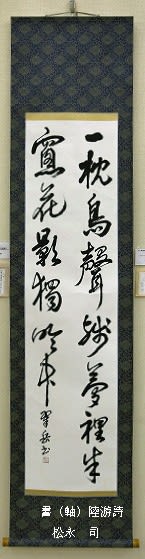 一枕鳥聲殘夢裡半
窻花影獨吟中
書（軸）陸游詩
松永 司